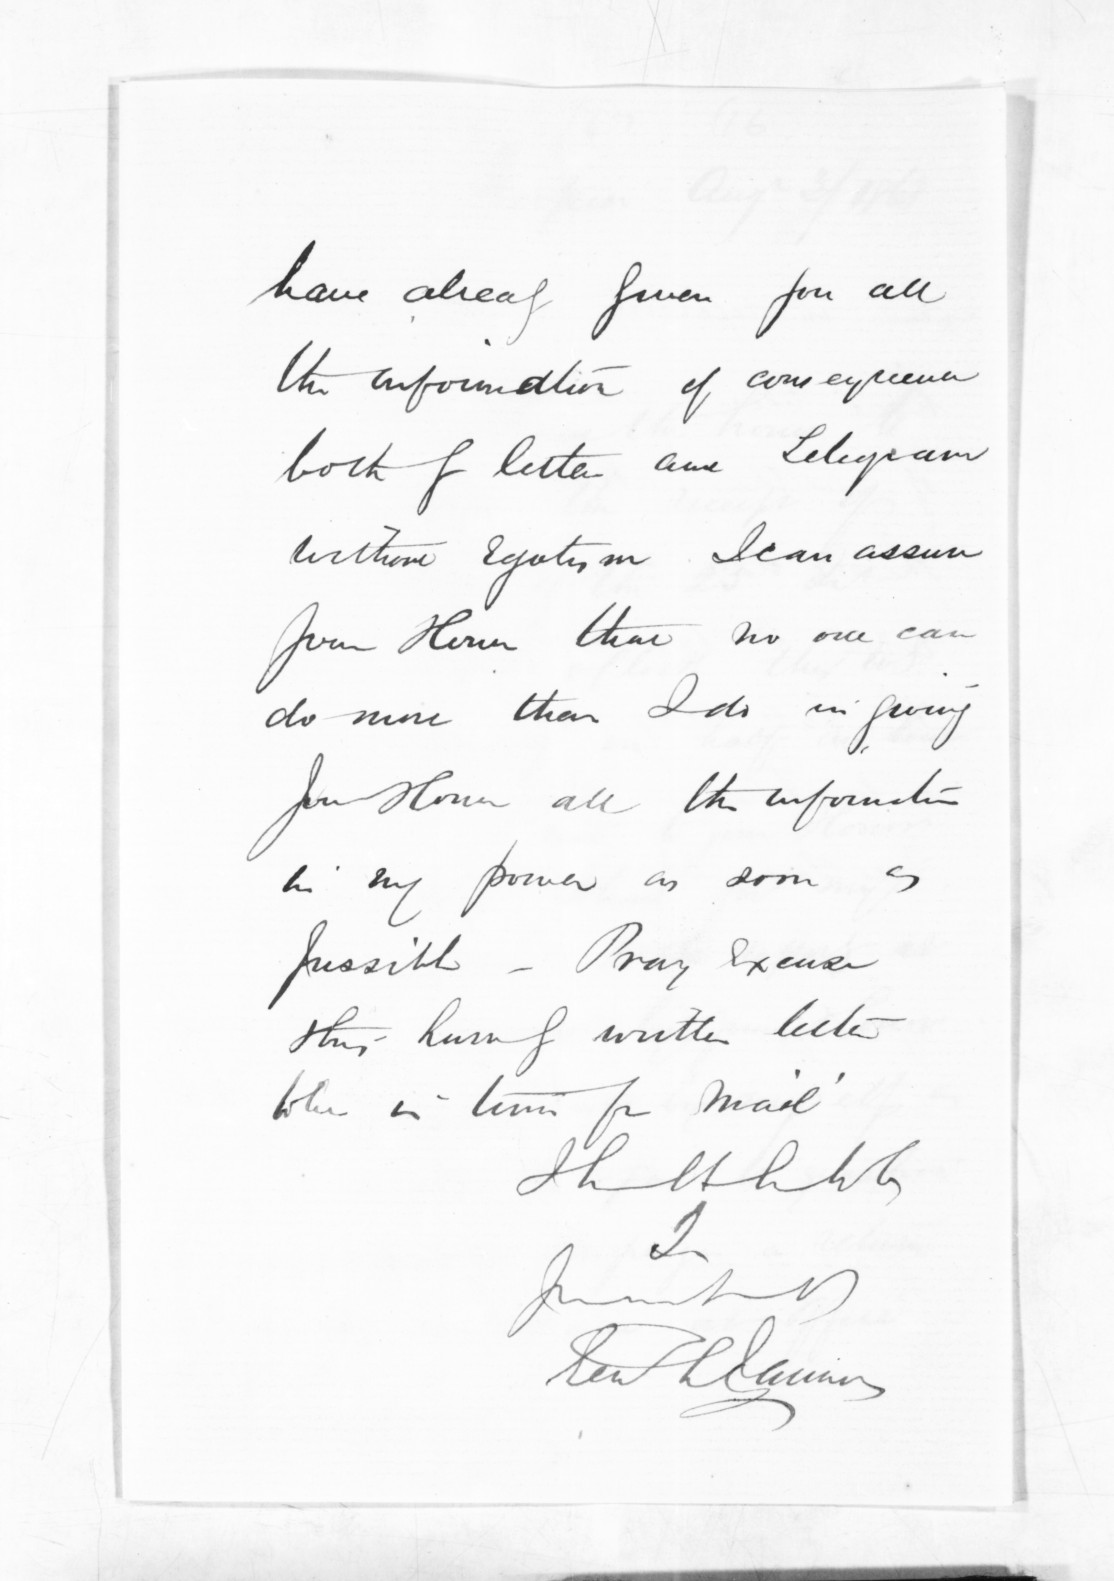 have already given you all
the information of consequence
both by letter and Telegram
without Egotism I can assure
your Honor that no one can
do more than I do in giving
your Honor all the information
in my power as soon as
possible — Pray Excuse
this hurriedly written letter
to be in time for Mail
I have the honor to be
Sir
Your most obt